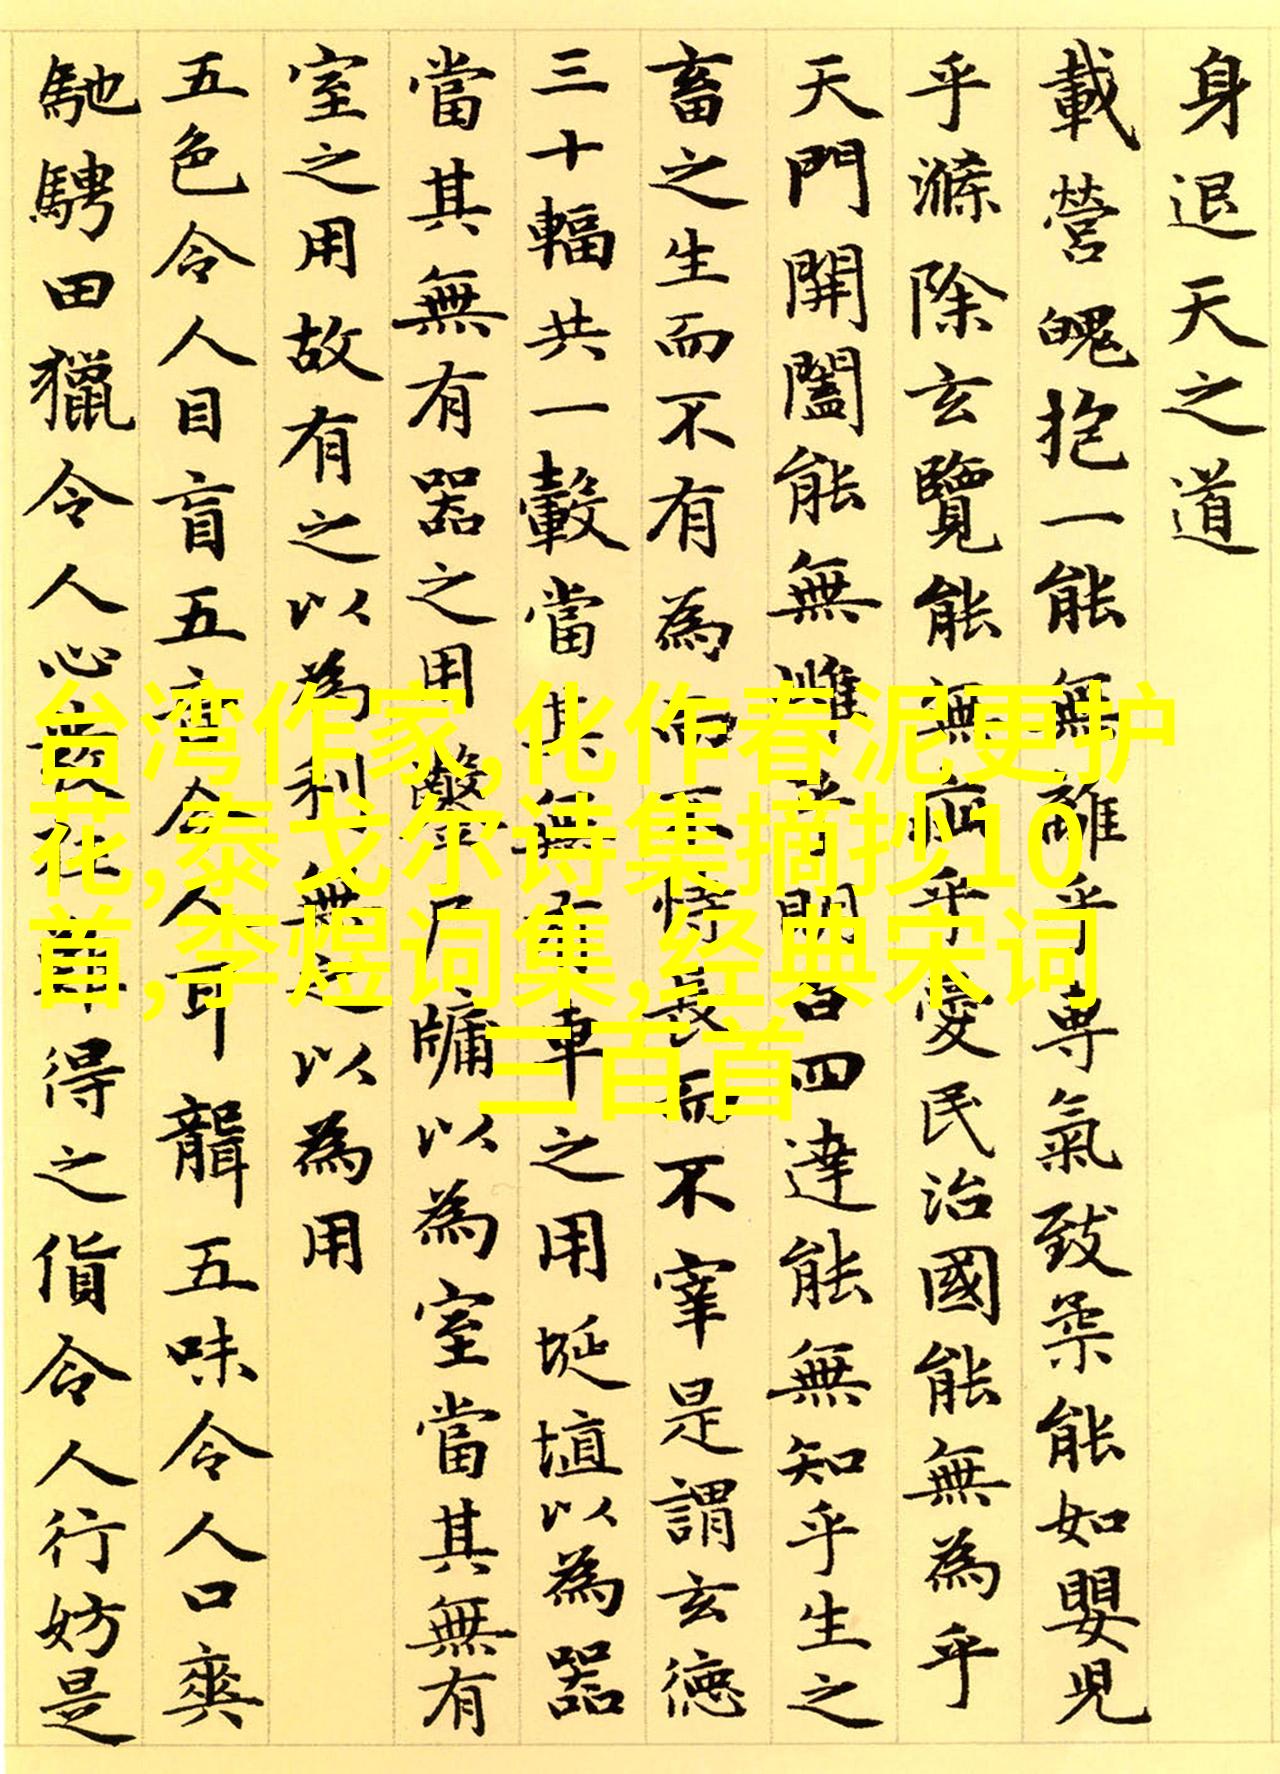 身退天之道
載營魄抱一能無離乎專氣致柔能如嬰兒
乎滌除玄覽能無疵乎愛民治國能無為乎
天門開闔能無雌乎明白四達能無知乎生之
畜之生而不有為而不恃長而不宰是謂玄德
三十輻共一轂當其無有車之用埏埴以為器
當其無有器之用鑿戶牖以為室當其無有
室之用故有之以為利無之以為用
五色令人目盲五音令人耳聾五味令人口爽
馳騁田獵令人心發狂難得之貨令人行妨是
台湾作家,化作春泥更护
花,泰戈尔诗集摘抄10
首,李煜词集,经典宋词
三百首